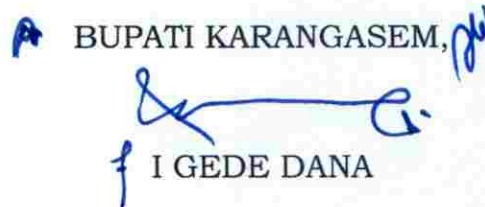 BUPATI KARANGASEM,
I GEDE DANA